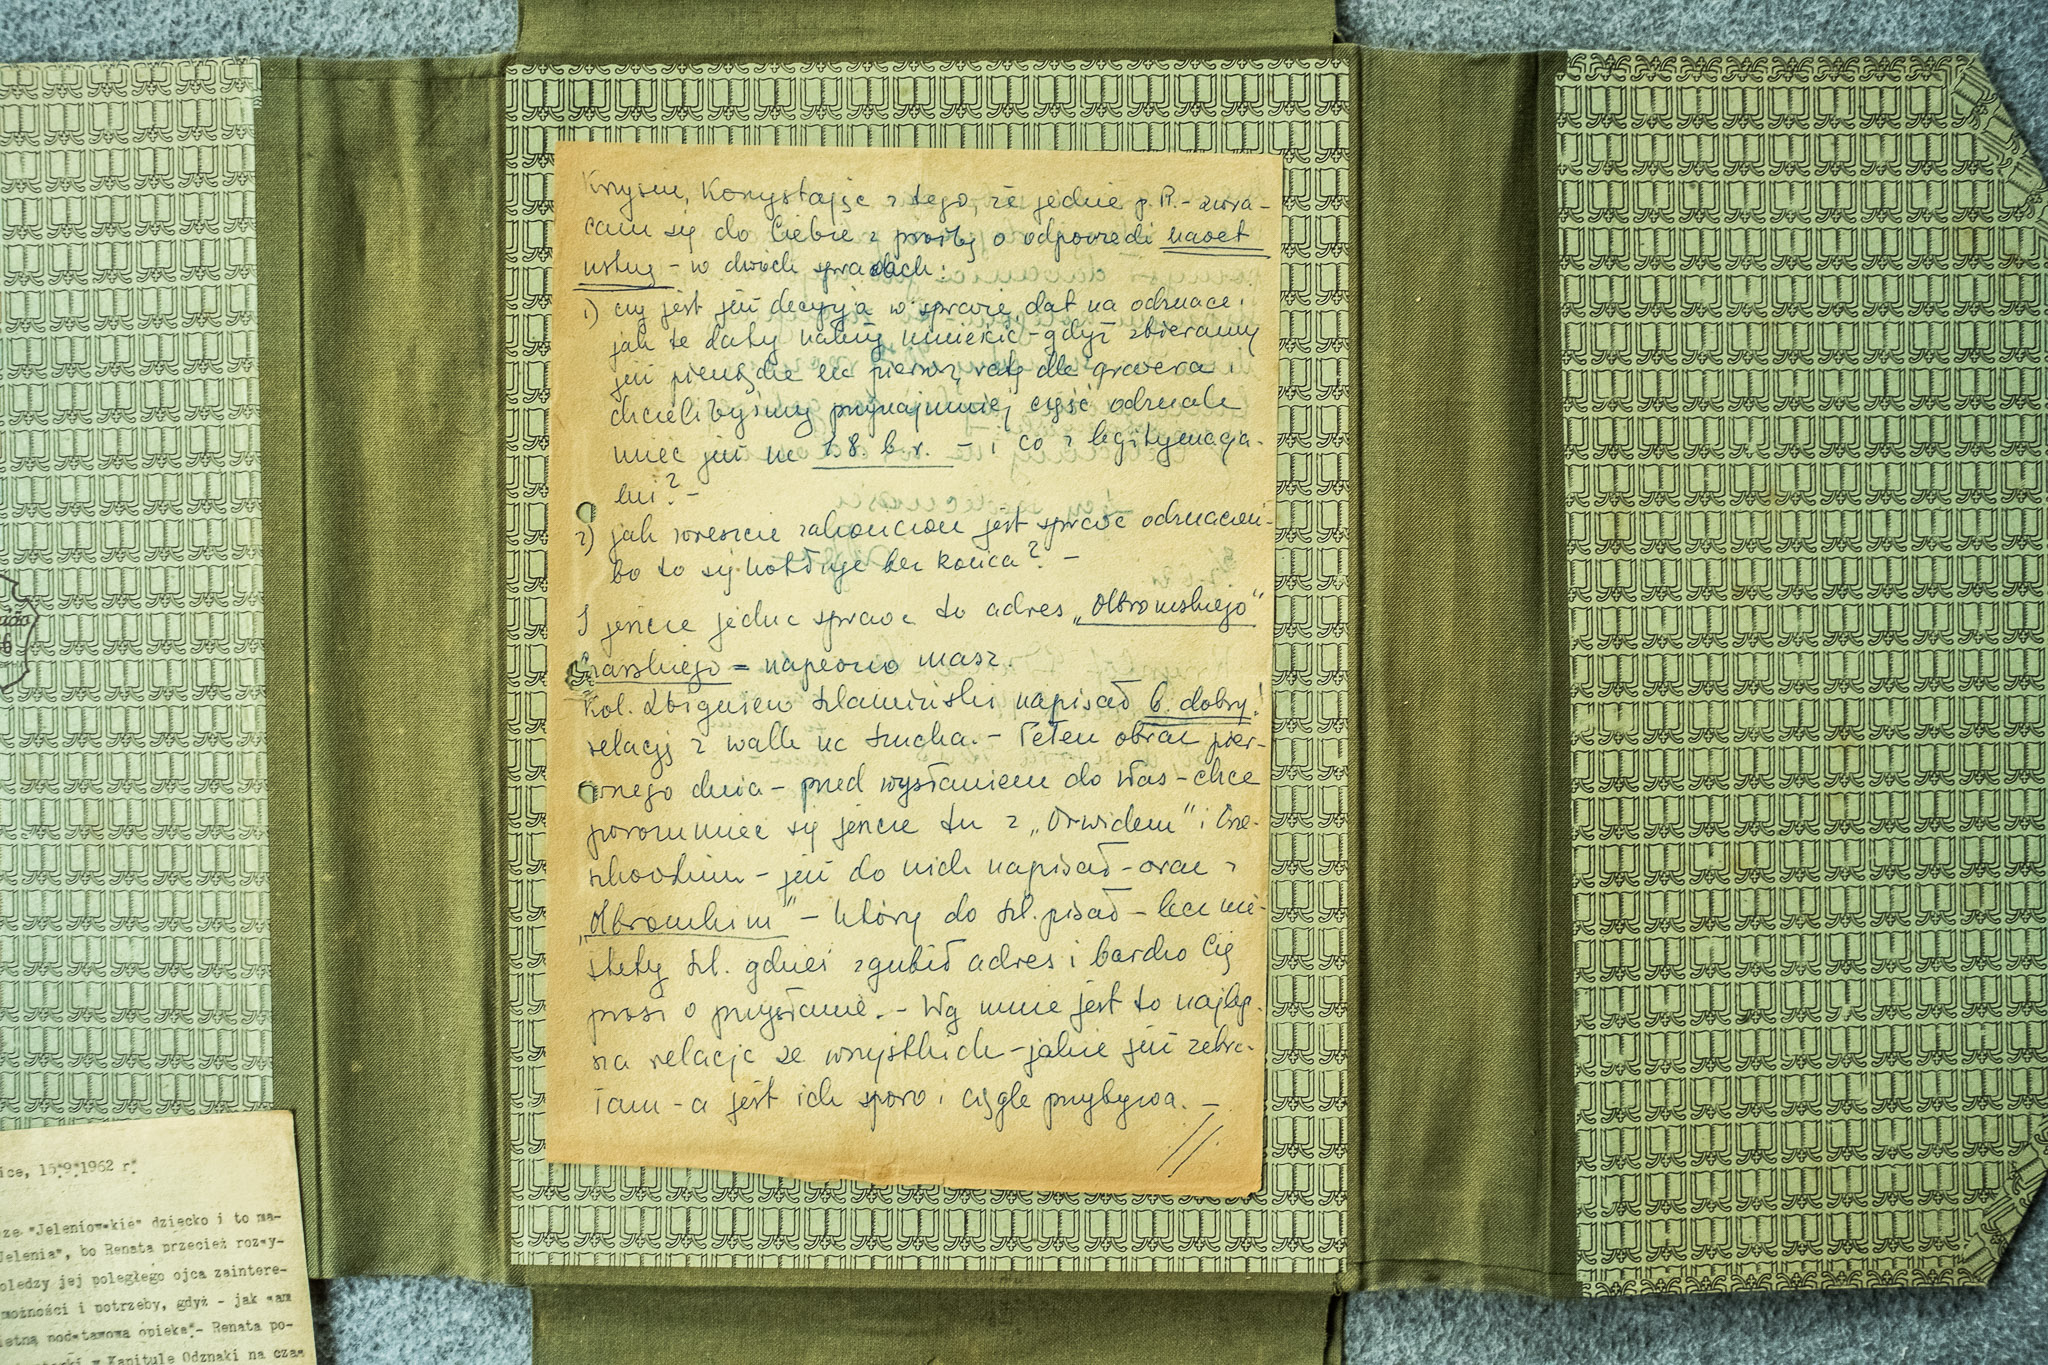 Krysiu, Korzystając z tego, że jedzie p. R. - zwra-
cam się do Ciebie z prośbą o odpowiedź nawet
usług - w dwóch sprawach:
1) czy jest już decyzja w sprawie dat na odznace i
jak te daty należy umieścić - gdyż zbieramy
już pieniądze na pierwszą ratę dla grawera
chcielibyśmy przynajmniej część odznak
mieć już na 1.8. b.r. - i co z legitymacja-
mi? -
2) jak wreszcie zakończona jest sprawa odznaczeń -
bo to się kotłuje bez końca? -
I jeszcze jedna sprawa to adres „Olbromskiego"
- napewno masz.
Kol. Zbigniew napisał b. dobrą!
relację z walk na Szucha. - Pełen obraz pier-
wszego dnia - przed wysłaniem do Was - chce
porozumieć się jeszcze tu z „Orwidem" i Cze-
- już do nich napisał - oraz z
„Olbromskim" - który do Szl. pisał - lecz nie-
stety Szl. gdzieś zgubił adres i bardzo Cię
prosi o przysłanie. - Wg mnie jest to najlep-
sza relacja ze wszystkich - jakie już zebra-
łam - a jest ich sporo i ciągle przybywa. -
//
ice, 15.9.1962 r.
sze "Jeleniowskie" dziecko i to ma-
Jelenia", bo Renata przecież rozwy-
oledzy jej poległego ojca zaintere-
możności i potrzeby, gdyż - jak wam
letną podstawowa opieka.- Renata po-
w Kapitule Odznaki na cza-